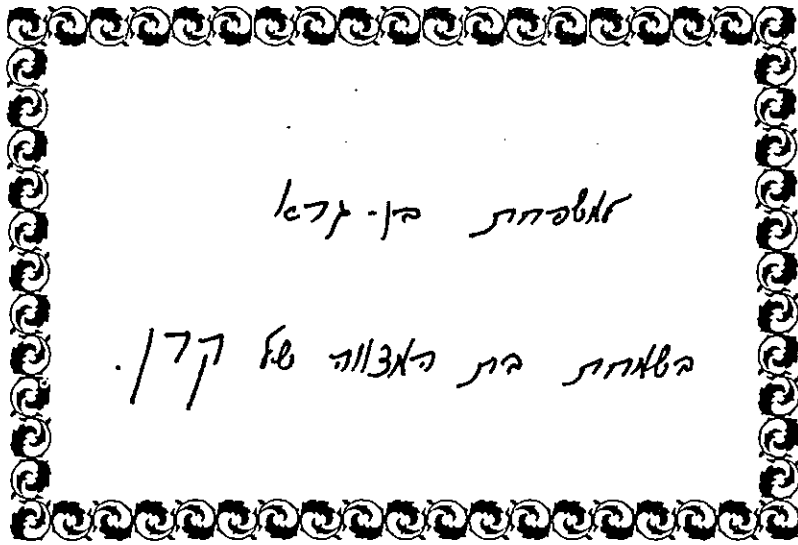 למשפחת בן-גרא
בשמחת בת המצווה של קרן.